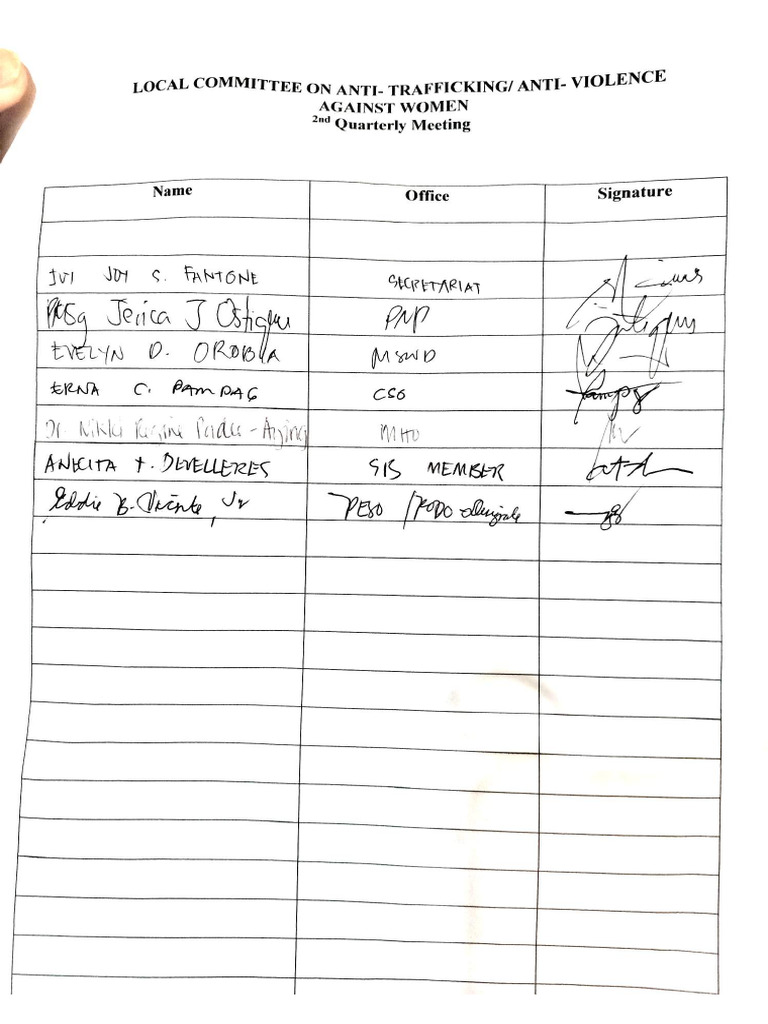 LOCAL COMMITTEE ON ANTI- TRAFFICKING/ ANTI- VIOLENCE
AGAINST WOMEN
2nd Quarterly Meeting
Name Office Signature
IVI JOY S. FANTONE SECRETARIAT
Jerica J PNP
EVELYN D. OROBIA MSWD
ERNA C. PAMPAG CSO
Dr. Nikki MHO
ANECITA T. DEVELLERES SIS MEMBER
Eddie B. Vicente, Jr PESO